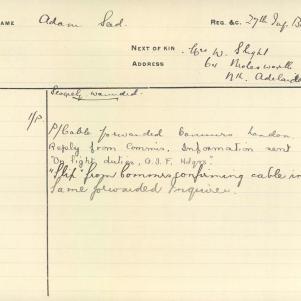 NAME Adam Sad. REG. &C. 27th Inf. B
NEXT OF KIN Mrs W. Slight
ADDRESS 64 Molesworth
Nth. Adelaide
Severely wounded.
P/Cable forwarded Commrs London
Reply from Commrs. Information sent
"On light duties, A.I.F. Hdqrs"
"Slip" from Commrs confirming cable in
same forwarded Inquirer.